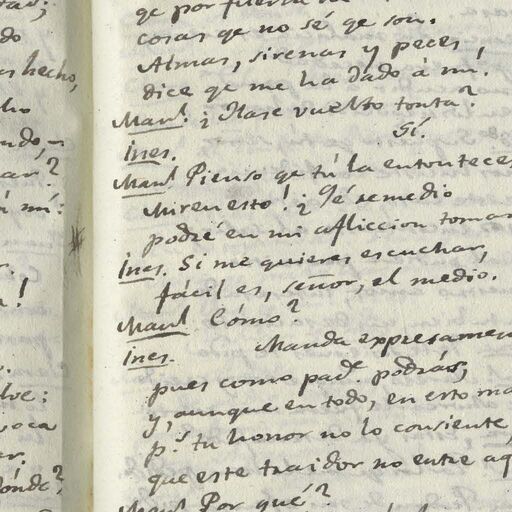 do
hecho,
ho
ndo,
ar?
mí:
r.
a!
lve;
voca
ar.
ónde?
qe por fuerza
cosas qe no sé qe son.
Almas, sirenas y peces,
dice qe me ha dado á mí.
Manl. ¿ Hase vuelto tonta?
Ines. Sí.
Manl. Pienso qe tú la entonteces
Miren esto! ¿ Qé remedio
podré en mi afliccion tomar
Ines. Si me quieres escuchar,
fácil es, señor, el medio.
Manl Cómo?
Ines. Manda expresamen
pues como pade. podrás;
y, aunque en todo, en esto ma
pr. tu honor no lo consiente
que este traidor no entre aq
Manl Por qué?